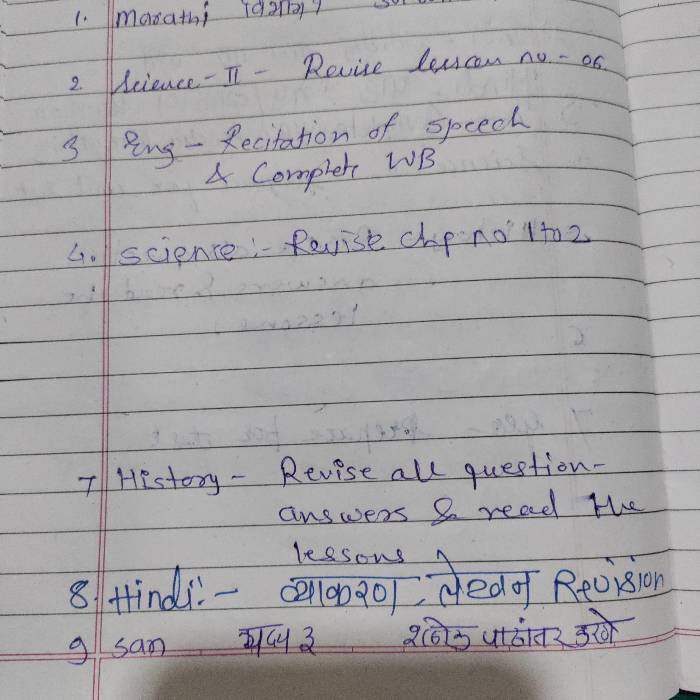 1. Marathi विभाग
2. Science-II - Revise lesson no.- 06.
3 Eng - Recitation of speech
& Complete WB
4. Science :- Revise chp no 1 to 2
7 History - Revise all question-
answers & read the
lessons
8. Hindi :- व्याकरण, लेखन Revision
9 san गद्य ३ श्लोक पाठांतर करणे